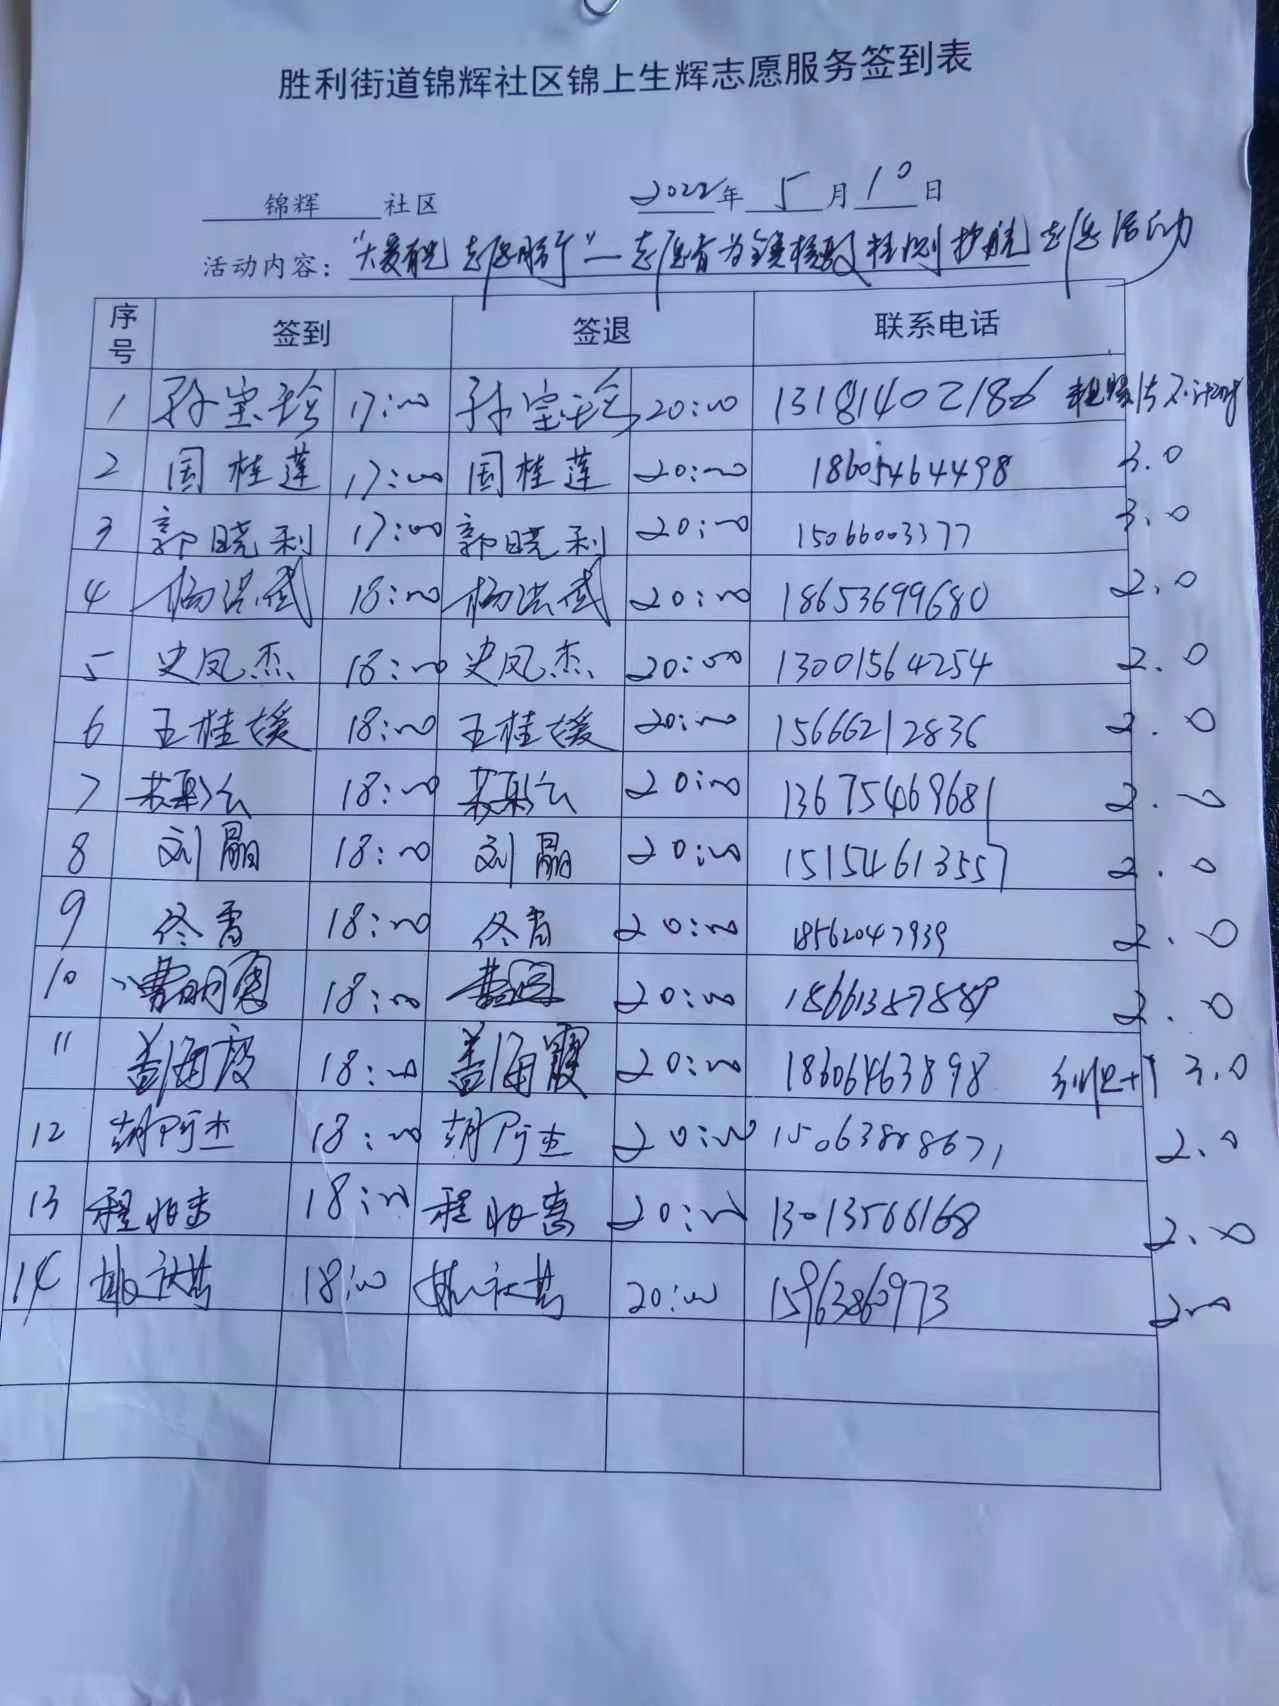 胜利街道锦辉社区锦上生辉志愿服务签到表
锦辉 社区 2022年 5月 10日
活动内容：“大爱有我 志愿同行”—志愿者为全员核酸检测护航志愿活动
序号 签到 签退 联系电话
1 孙宝珍 17:00 孙宝珍 20:00 13181402186 不计时
2 国桂莲 17:00 国桂莲 20:00 18605464498 3.0
3 郭晓利 17:00 郭晓利 20:00 15066003377 3.0
4 杨洪武 18:00 杨洪武 20:00 18653699680 2.0
5 史凤杰 18:00 史凤杰 20:00 13001564254 2.0
6 王桂媛 18:00 王桂媛 20:00 15666212836 2.0
7 18:00 20:00 13675469681 2.0
8 刘晶 18:00 刘晶 20:00 15154613557 2.0
9 佟香 18:00 佟香 20:00 18562047939 2.0
10 曹明 18:00 20:00 18661387889 2.0
11 盖海霞 18:00 盖海霞 20:00 18606463898 3.0
12 胡阿杰 18:00 胡阿杰 20:00 15063888671 2.0
13 程 18:00 程 20:00 13013566168 2.0
14 18:00 20:00 15963860973 2.0